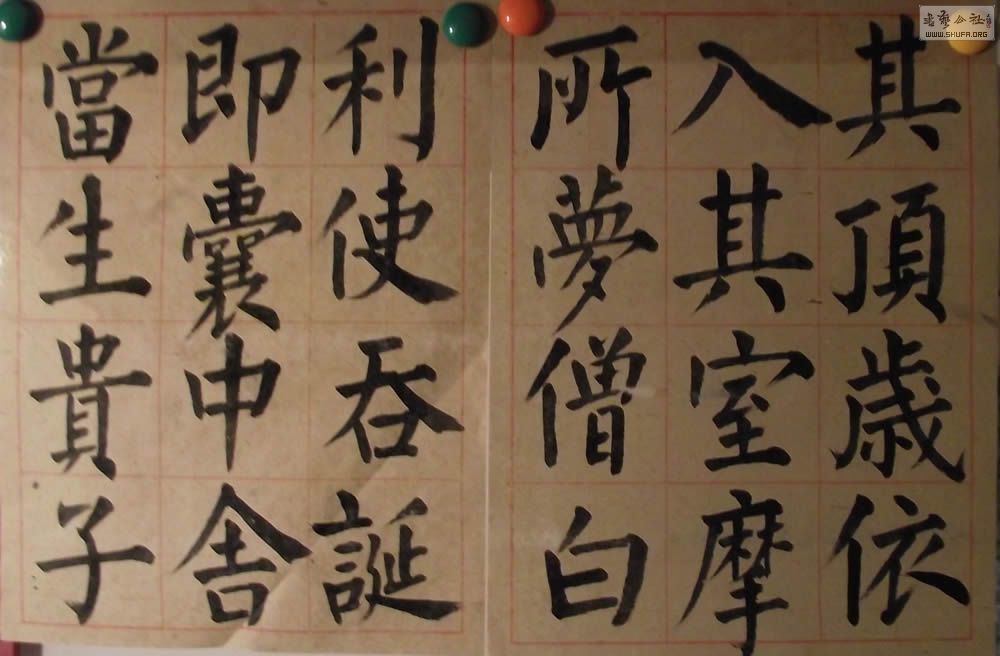 其頂歲依
入其室摩
所夢僧白
利使吞誕
即囊中舍
當生貴子
書藝公社
WWW.SHUFA.ORG